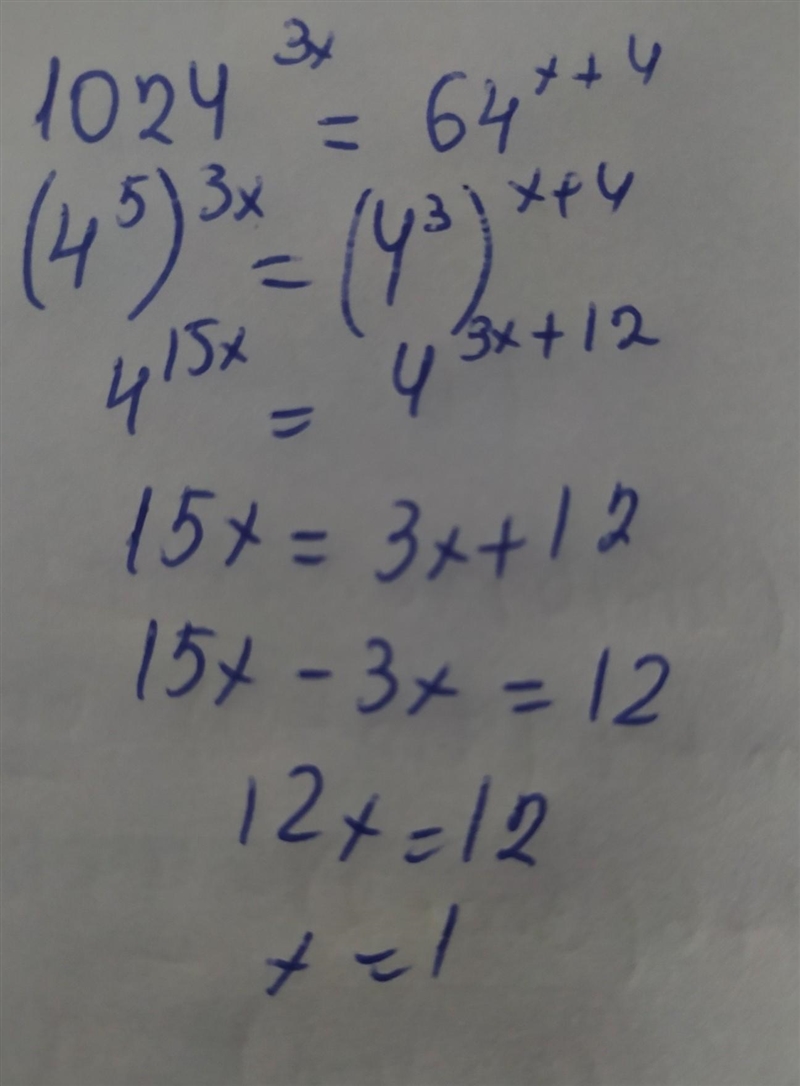 1024^{3x} = 64^{x+4}
(4^5)^{3x} = (4^3)^{x+4}
4^{15x} = 4^{3x+12}
15x = 3x+12
15x - 3x = 12
12x = 12
x = 1